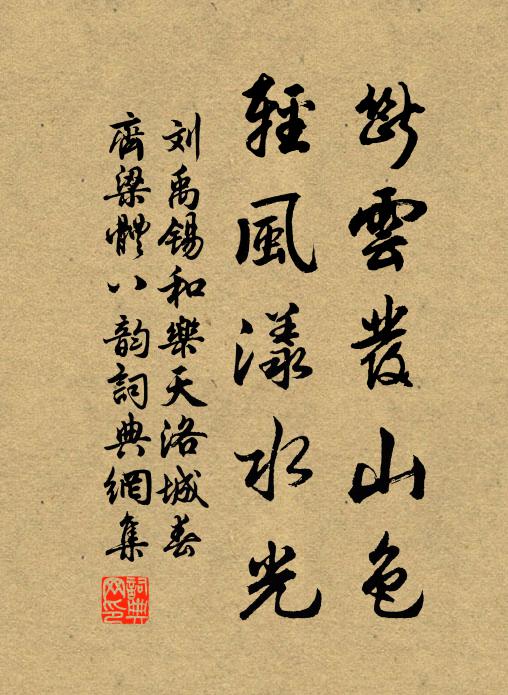 斷雲發山色
輕風漾水光
刘禹锡和樂天洛城春
齊梁體八韵詞典網集
詞典
网印